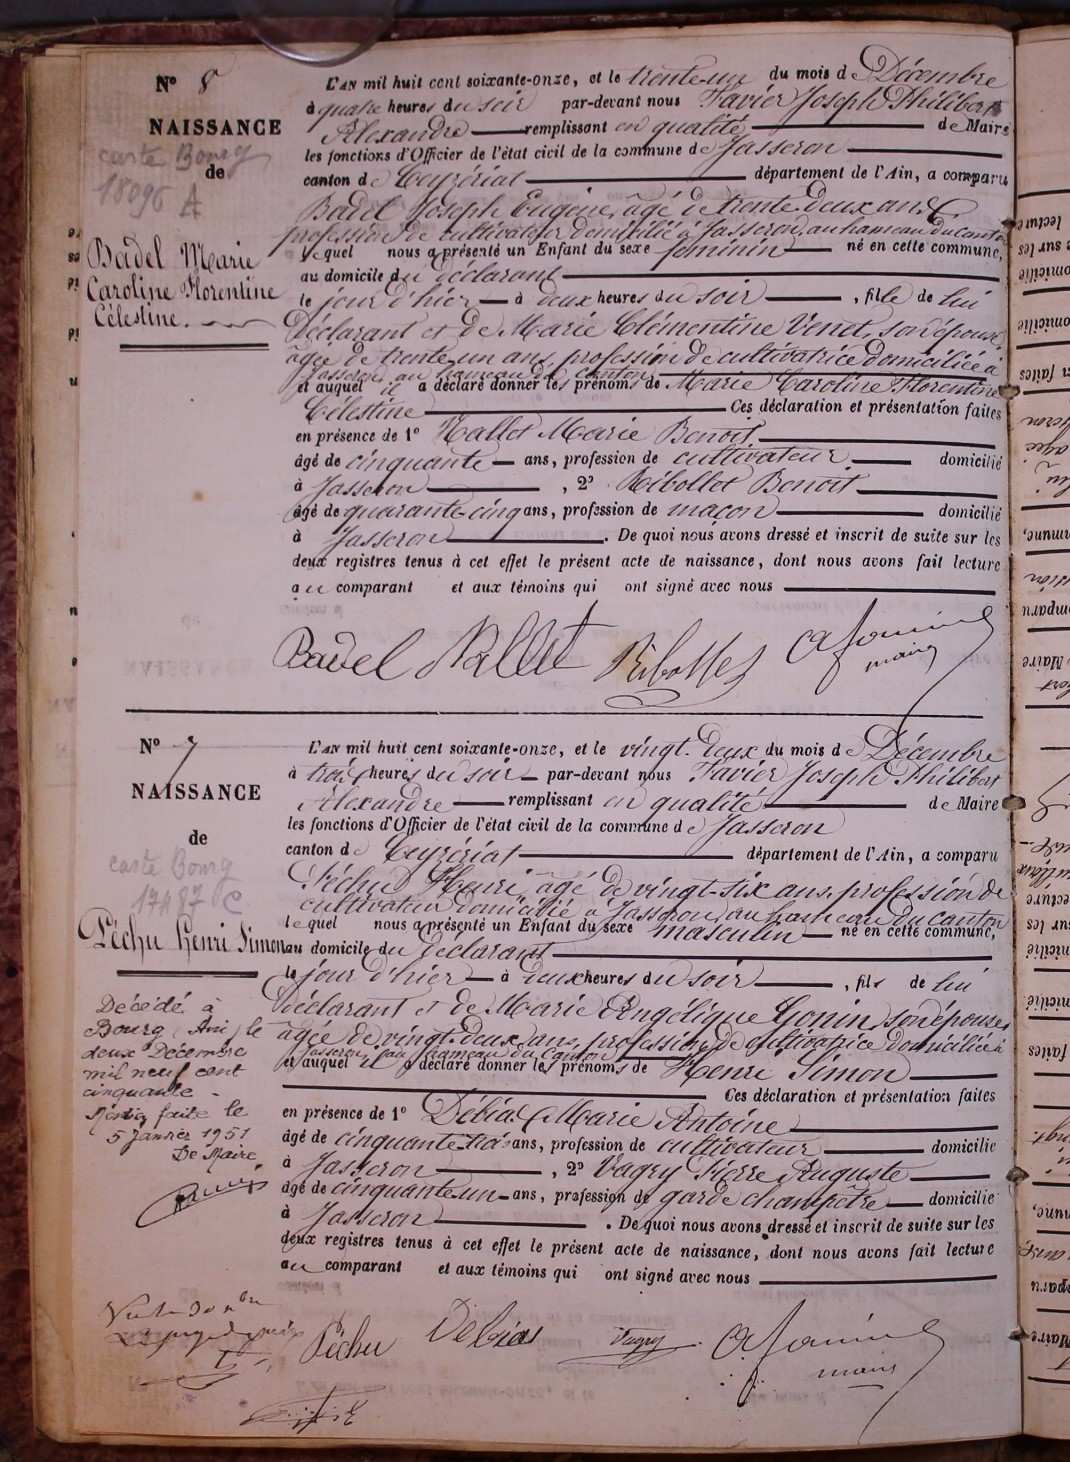 N° 8
NAISSANCE
de
carte Bourg
18096 A
Badel Marie
Caroline Florentine
Célestine.
L'AN mil huit cent soixante-onze, et le trente-un du mois de Décembre
à quatre heures du soir par-devant nous Favier Joseph Philibert
Alexandre remplissant en qualité de Maire
les fonctions d'Officier de l'état civil de la commune de Jasseron
canton de Ceyzériat département de l'Ain, a comparu
Badel Joseph Eugène, âgé de trente-deux ans,
profession de cultivateur domicilié à Jasseron, au hameau du Canton
lequel nous a présenté un Enfant du sexe féminin né en cette commune,
au domicile du déclarant
le jour d'hier à deux heures du soir, fille de lui
déclarant et de Marie Clémentine Venet, son épouse,
âgée de trente-un ans, profession de cultivatrice domiciliée à
Jasseron, au hameau du Canton
et auquel il a déclaré donner les prénoms de Marie Caroline Florentine
Célestine Ces déclaration et présentation faites
en présence de 1° Nallet Marie Benoit
âgé de cinquante ans, profession de cultivateur domicilié
à Jasseron, 2° Ribollet Benoit
âgé de quarante-cinq ans, profession de maçon domicilié
à Jasseron. De quoi nous avons dressé et inscrit de suite sur les
deux registres tenus à cet effet le présent acte de naissance, dont nous avons fait lecture
au comparant et aux témoins qui ont signé avec nous
Badel Nallet Ribollet
maire
N° 7
NAISSANCE
de
carte Bourg
17487 C
Péchu Henri Simon
L'AN mil huit cent soixante-onze, et le vingt-deux du mois de Décembre
à trois heures du soir par-devant nous Favier Joseph Philibert
Alexandre remplissant en qualité de Maire
les fonctions d'Officier de l'état civil de la commune de Jasseron
canton de Ceyzériat département de l'Ain, a comparu
Péchu Henri, âgé de vingt-six ans, profession de
cultivateur domicilié à Jasseron, au hameau du Canton
lequel nous a présenté un Enfant du sexe masculin né en cette commune,
au domicile du déclarant
le jour d'hier à deux heures du soir, fils de lui
déclarant et de Marie Engélique Gonin, son épouse,
âgée de vingt-deux ans, profession de cultivatrice domiciliée à
Jasseron, au hameau du Canton
et auquel il a déclaré donner les prénoms de Henri Simon
Ces déclaration et présentation faites
en présence de 1° Débias Marie Antoine
âgé de cinquante-trois ans, profession de cultivateur domicilié
à Jasseron, 2° Vagry Pierre Auguste
âgé de cinquante-un ans, profession de garde champêtre domicilié
à Jasseron. De quoi nous avons dressé et inscrit de suite sur les
deux registres tenus à cet effet le présent acte de naissance, dont nous avons fait lecture
au comparant et aux témoins qui ont signé avec nous
Décédé à
Bourg (Ain) le
deux Décembre
mil neuf cent
cinquante -
Mention faite le
5 Janvier 1951
Le Maire,
Péchu Debias Vagry
maire